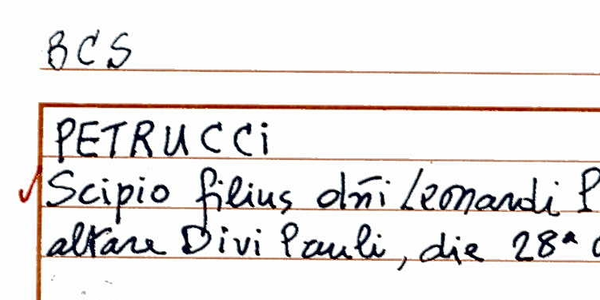 BCS
PETRUCCi
Scipio filius dn̄i Leonardi P
altare Divi Pauli, die 28ª